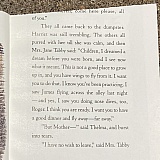 of you."
They all came back to the dumpster.
Harriet was still trembling. The others all
purred with her till she was calm, and then
Mrs. Jane Tabby said: "Children, I dreamed a
dream before you were born, and I see now
what it means. This is not a good place to grow
up in, and you have wings to fly from it. I want
you to do that. I know you've been practicing. I
saw James flying across the alley last night
—and yes, I saw you doing nose dives, too,
Roger. I think you are ready. I want you to have
a good dinner and fly away—far away."
"But Mother—" said Thelma, and burst
into tears.
"I have no wish to leave," said Mrs. Tabby